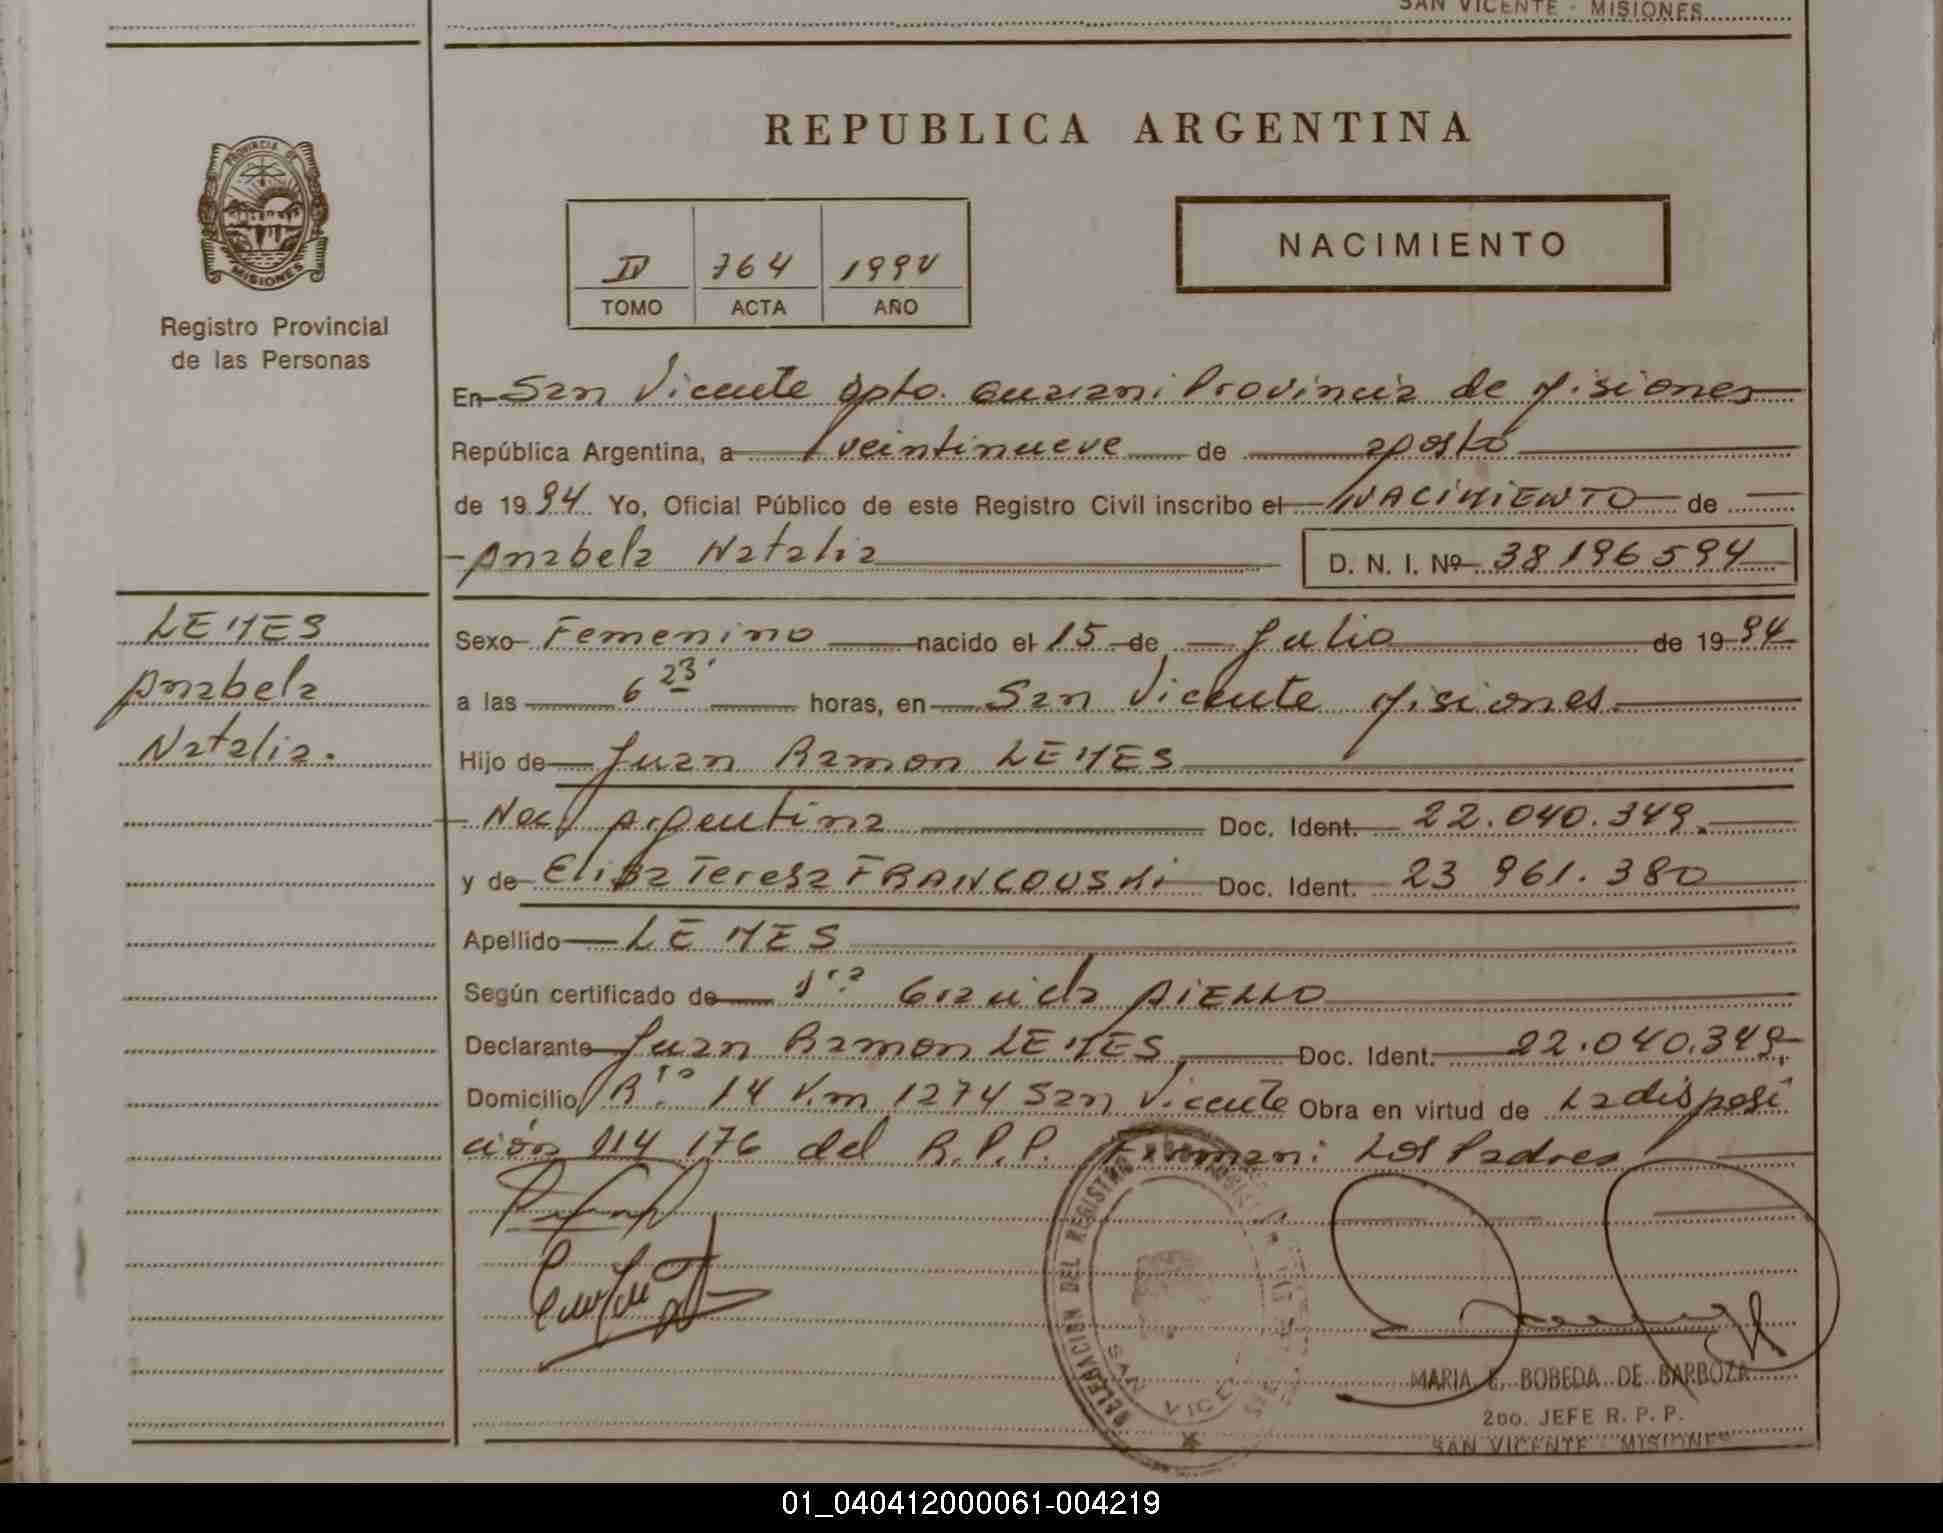 SAN VICENTE - MISIONES
REPUBLICA ARGENTINA
PROVINCIA DE
MISIONES
Registro Provincial
de las Personas
IV 764 1994
TOMO ACTA AÑO
NACIMIENTO
En San Vicente Dpto. Guarani Provincia de Misiones
República Argentina, a veintinueve de agosto
de 1994 Yo, Oficial Público de este Registro Civil inscribo el NACIMIENTO de
Anabela Natalia D. N. I. Nº 38196594
LEMES
Anabela
Natalia.
Sexo Femenino nacido el 15 de Julio de 1994
a las 6 23' horas, en San Vicente Misiones
Hijo de Juan Ramon LEMES
Nac Argentina Doc. Ident. 22.040.349.
y de Elisa Teresa FRANCOUSKi Doc. Ident. 23 961.380
Apellido LEMES
Según certificado de Graciela AiELLO
Declarante Juan Ramon LEMES Doc. Ident. 22.040.349,
Domicilio R. 14 Km 1274 San Vicente Obra en virtud de La disposi
ción 114 176 del R.P.P. Firman: Los Padres
DELEGACION DEL REGISTRO
SAN VICE
MARIA E. BOBEDA DE BARBOZA
2do. JEFE R. P. P.
SAN VICENTE - MISIONES
01_040412000061-004219